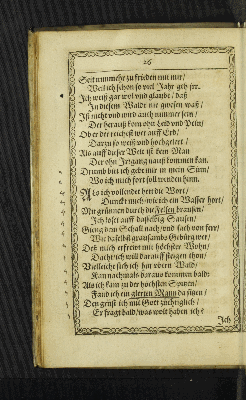 26
Seit nunmehr zu frieden mit mir/
Weil ich schon so viel Jahr geh irr.
Ich weiß gar wol und glaube/ daß
In diesem Walde nie gwesen
Ist nicht und wird auch nimmer seyn/
Der herauß kom ohn Leid und Pein/
Ob er der reichest wer auff Erd/
Darzu so weiß und hochgelert/
Als auff dieser Welt ist kein Man
Der ohn Irrgang auß kommen kan.
Drumb bin ich gebt mir in mein Sinn/
Wo ich mich fort soll wenden hinn.
Als ich vollendet hett die Wort/
Dunckt mich/ wie ich ein Wasser hort/
Mit grünnen durch die Felsen brausen/
Ich loset auff dasselbig Sausen/
Gieng dem Schall nach/ und sach von ferr/
Wie daselbst grausambs Gebürg wer/
Deß mich erfreut mit höchster Wohn/
Dacht ich will darauff steigen thon/
Vielleicht sich ich ihn vbern Wald/
Kan nachmals darauß kommen bald:
Als ich kam zu der höchsten Spitzen/
Fand ich ein glerten Mann da sitzen/
Den grüst ich mit Gott züchtiglich/
Er fragt bald/ was wolt haben ich?
Ich